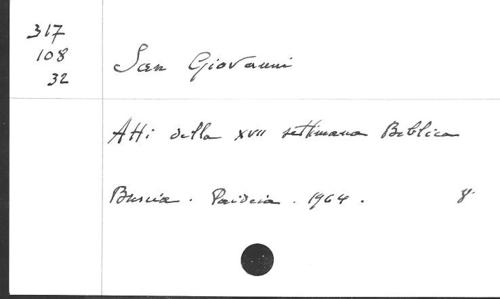 317
108
32
San Giovanni
Atti della XVII settimana Biblica
Brescia. Paideia. 1964. 8°